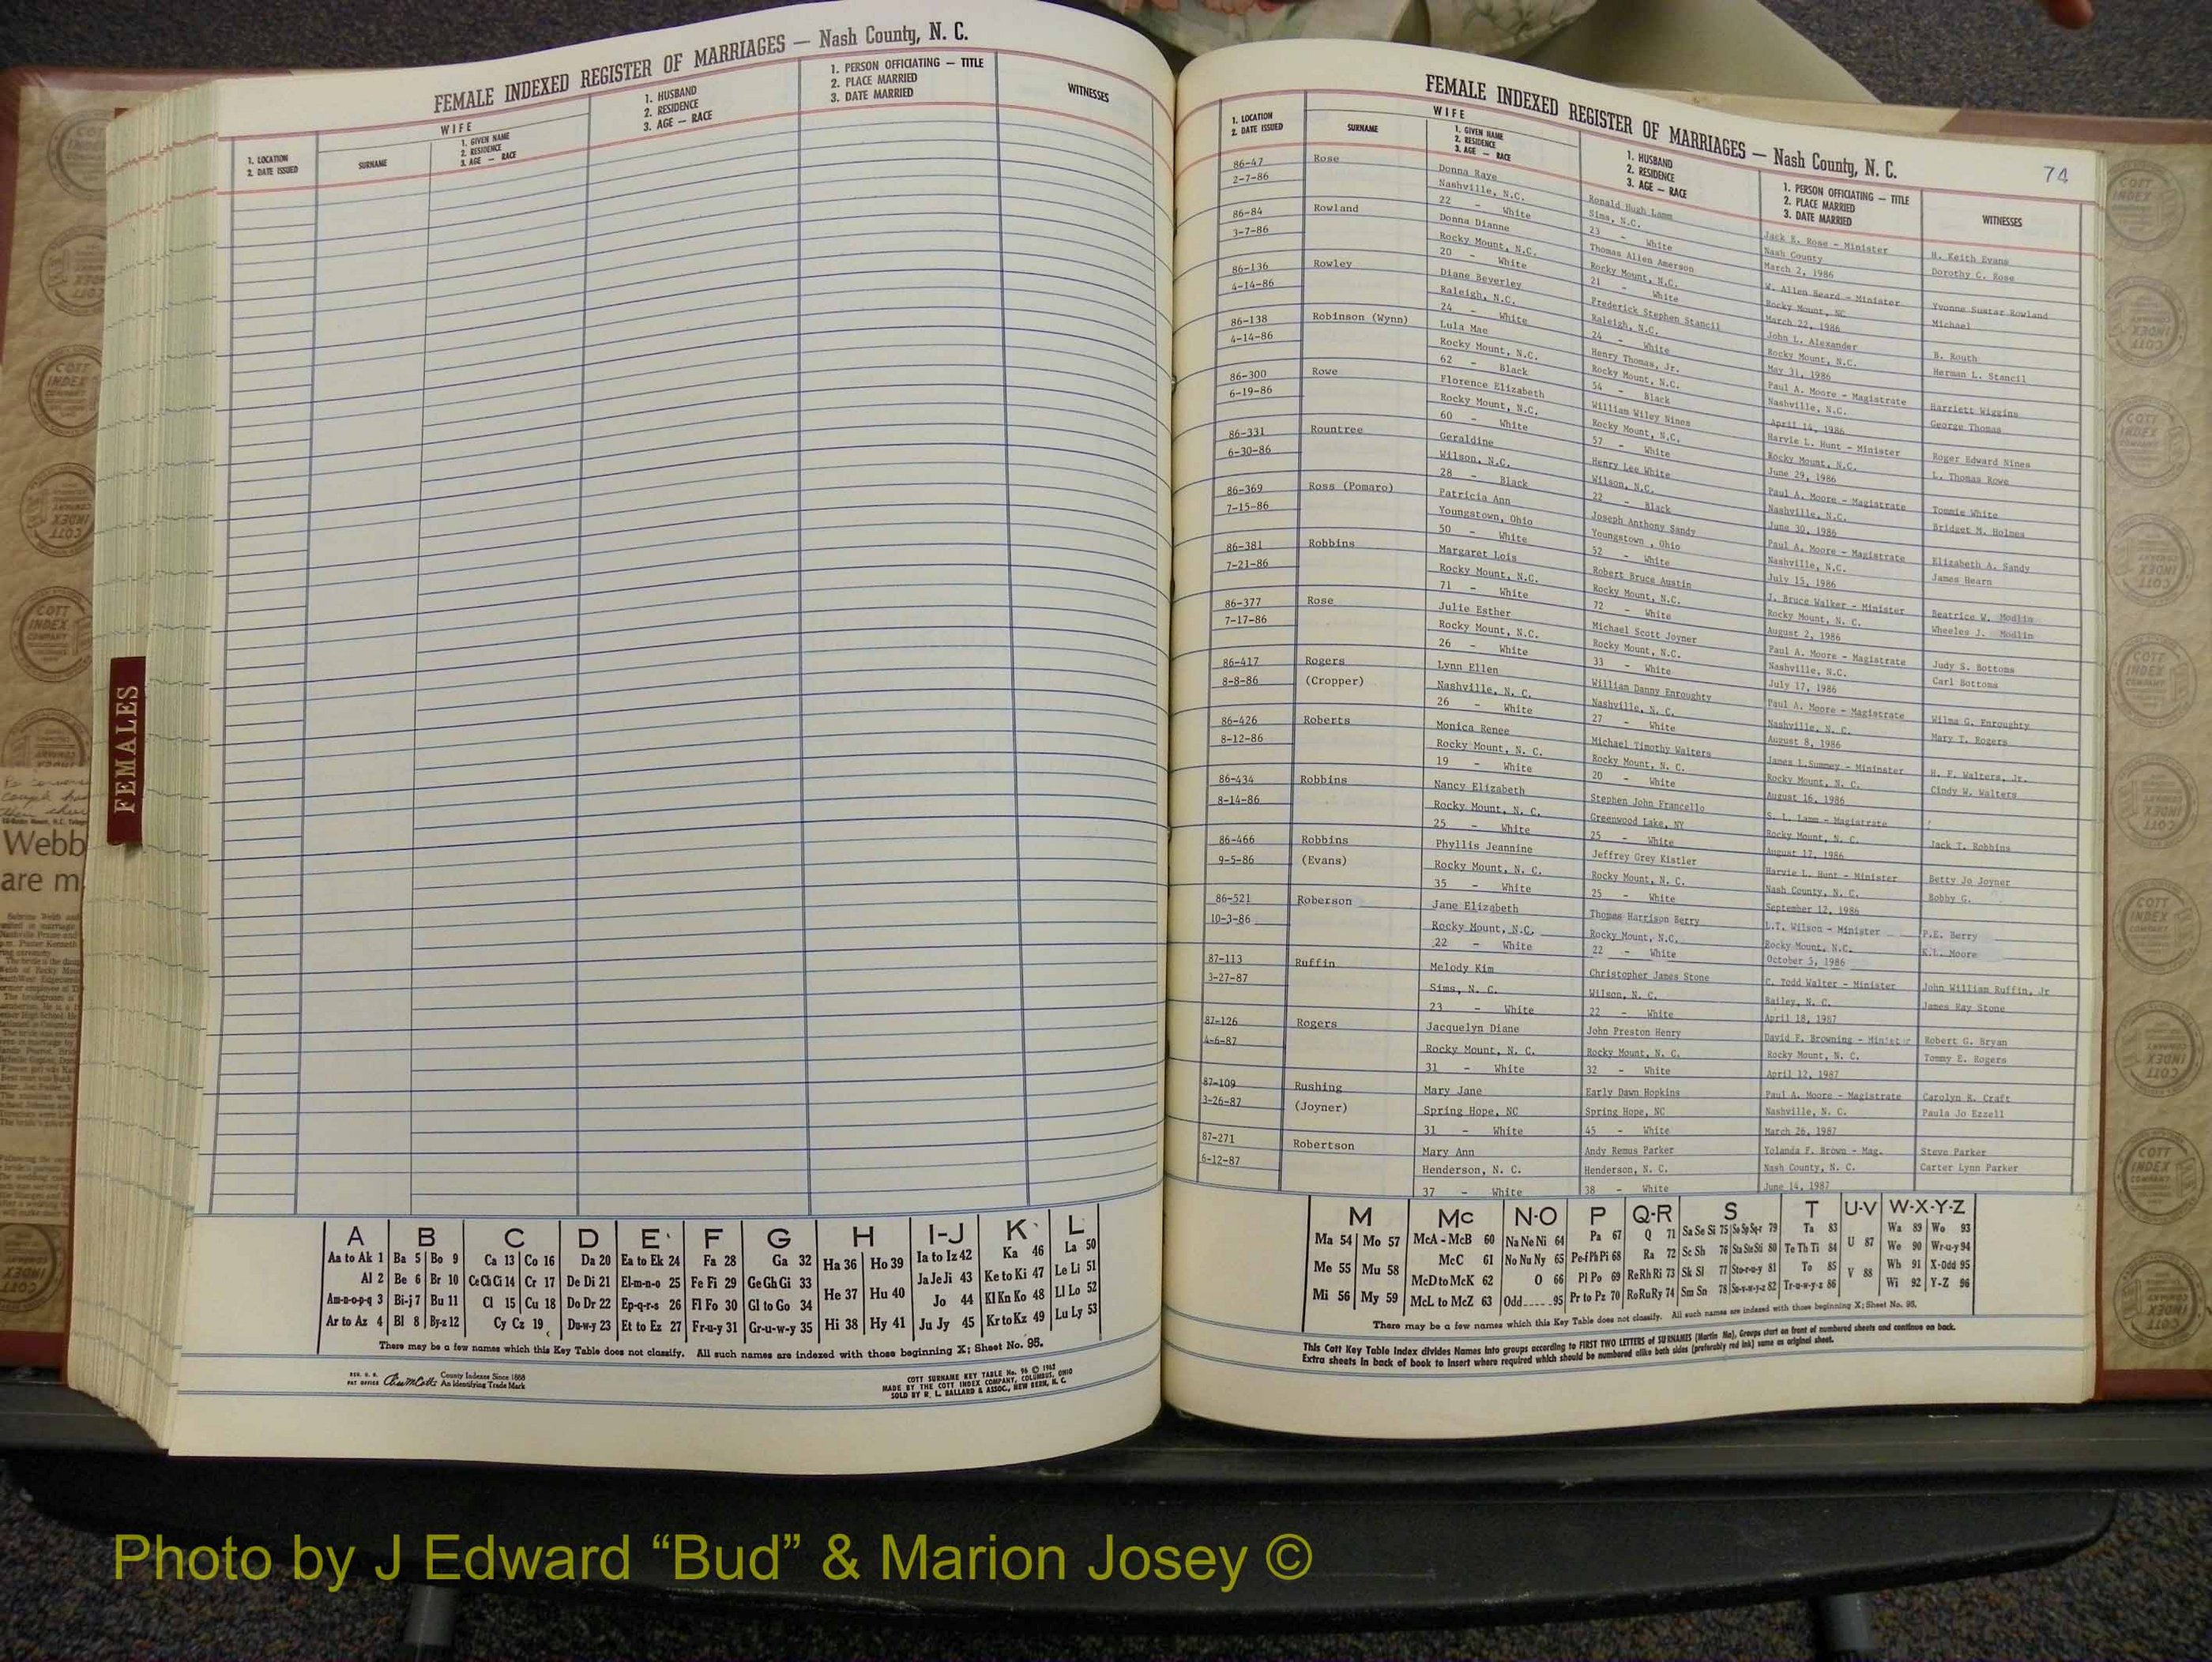 FEMALE INDEXED REGISTER OF MARRIAGES — Nash County, N. C.
1. LOCATION
2. DATE ISSUED
WIFE
SURNAME
1. GIVEN NAME
2. RESIDENCE
3. AGE — RACE
1. HUSBAND
2. RESIDENCE
3. AGE — RACE
1. PERSON OFFICIATING — TITLE
2. PLACE MARRIED
3. DATE MARRIED
WITNESSES
FEMALES
Webb
are m
A B C D E F G H I-J K L
Aa to Ak 1 Ba 5 Bo 9 Ca 13 Co 16 Da 20 Ea to Ek 24 Fa 28 Ga 32 Ha 36 Ho 39 Ia to Iz 42 Ka 46 La 50
Al 2 Be 6 Br 10 Ce Ch Ci 14 Cr 17 De Di 21 El-m-n-o 25 Fe Fi 29 Ge Gh Gi 33 Ja Je Ji 43 Ke to Ki 47 Le Li 51
Am-n-o-p-q 3 Bi-j 7 Bu 11 Cl 15 Cu 18 Do Dr 22 Ep-q-r-s 26 Fl Fo 30 Gl to Go 34 He 37 Hu 40 Jo 44 Kl Kn Ko 48 Ll Lo 52
Ar to Az 4 Bl 8 By-z 12 Cy Cz 19 Du-w-y 23 Et to Ez 27 Fr-u-y 31 Gr-u-w-y 35 Hi 38 Hy 41 Ju Jy 45 Kr to Kz 49 Lu Ly 53
There may be a few names which this Key Table does not classify. All such names are indexed with those beginning X; Sheet No. 95.
County Indexes Since 1888
An Identifying Trade Mark
COTT SURNAME KEY TABLE No. 96 © 1962
MADE BY THE COTT INDEX COMPANY, COLUMBUS, OHIO
SOLD BY R. L. BALLARD & ASSOC., NEW BERN, N. C.
FEMALE INDEXED REGISTER OF MARRIAGES — Nash County, N. C.
74
1. LOCATION
2. DATE ISSUED
WIFE
SURNAME
1. GIVEN NAME
2. RESIDENCE
3. AGE — RACE
1. HUSBAND
2. RESIDENCE
3. AGE — RACE
1. PERSON OFFICIATING — TITLE
2. PLACE MARRIED
3. DATE MARRIED
WITNESSES
86-47 Rose Donna Raye Ronald Hugh Lamm Jack R. Rose - Minister H. Keith Evans
2-7-86 Nashville, N.C. Sims, N.C. Nash County Dorothy C. Rose
22 - White 23 - White March 2, 1986
86-84 Rowland Donna Dianne Thomas Allen Amerson W. Allen Beard - Minister Yvonne Sustar Rowland
3-7-86 Rocky Mount, N.C. Rocky Mount, N.C. Rocky Mount, NC Michael
20 - White 21 - White March 22, 1986
86-136 Rowley Diane Beverley Frederick Stephen Stancil John L. Alexander B. Routh
4-14-86 Raleigh, N.C. Raleigh, N.C. Rocky Mount, N.C. Herman L. Stancil
24 - White 24 - White May 31, 1986
86-138 Robinson (Wynn) Lula Mae Henry Thomas, Jr. Paul A. Moore - Magistrate Harriett Wiggins
4-14-86 Rocky Mount, N.C. Rocky Mount, N.C. Nashville, N.C. George Thomas
62 - Black 54 - Black April 14, 1986
86-300 Rowe Florence Elizabeth William Wiley Nines Harvie L. Hunt - Minister Roger Edward Nines
6-19-86 Rocky Mount, N.C. Rocky Mount, N.C. Rocky Mount, N.C. L. Thomas Rowe
60 - White 57 - White June 29, 1986
86-331 Rountree Geraldine Henry Lee White Paul A. Moore - Magistrate Tommie White
6-30-86 Wilson, N.C. Wilson, N.C. Nashville, N.C. Bridget M. Holmes
28 - Black 22 - Black June 30, 1986
86-369 Ross (Pomaro) Patricia Ann Joseph Anthony Sandy Paul A. Moore - Magistrate Elizabeth A. Sandy
7-15-86 Youngstown, Ohio Youngstown , Ohio Nashville, N.C. James Hearn
50 - White 52 - White July 15, 1986
86-381 Robbins Margaret Lois Robert Bruce Austin J. Bruce Walker - Minister Beatrice W. Modlin
7-21-86 Rocky Mount, N.C. Rocky Mount, N.C. Rocky Mount, N. C. Wheeles J. Modlin
71 - White 72 - White August 2, 1986
86-377 Rose Julie Esther Michael Scott Joyner Paul A. Moore - Magistrate Judy S. Bottoms
7-17-86 Rocky Mount, N.C. Rocky Mount, N.C. Nashville, N.C. Carl Bottoms
26 - White 33 - White July 17, 1986
86-417 Rogers Lynn Ellen William Danny Enroughty Paul A. Moore - Magistrate Wilma G. Enroughty
8-8-86 (Cropper) Nashville, N. C. Nashville, N. C. Nashville, N. C. Mary T. Rogers
26 - White 27 - White August 8, 1986
86-426 Roberts Monica Renee Michael Timothy Walters James L.Summey - Mininster H. F. Walters, Jr.
8-12-86 Rocky Mount, N. C. Rocky Mount, N. C. Rocky Mount, N. C. Cindy W. Walters
19 - White 20 - White August 16, 1986
86-434 Robbins Nancy Elizabeth Stephen John Francello S. L. Lamm - Magistrate
8-14-86 Rocky Mount, N. C. Greenwood Lake, NY Rocky Mount, N. C. Jack T. Robbins
25 - White 25 - White August 17, 1986
86-466 Robbins Phyllis Jeannine Jeffrey Grey Kistler Harvie L. Hunt - Minister Betty Jo Joyner
9-5-86 (Evans) Rocky Mount, N. C. Rocky Mount, N. C. Nash County, N. C. Bobby G.
35 - White 25 - White September 12, 1986
86-521 Roberson Jane Elizabeth Thomas Harrison Berry L.T. Wilson - Minister P.E. Berry
10-3-86 Rocky Mount, N.C. Rocky Mount, N.C. Rocky Mount, N.C. K.L. Moore
22 - White 22 - White October 5, 1986
87-113 Ruffin Melody Kim Christopher James Stone C. Todd Walter - Minister John William Ruffin, Jr
3-27-87 Sims, N. C. Wilson, N. C. Bailey, N. C. James Ray Stone
23 - White 22 - White April 18, 1987
87-126 Rogers Jacquelyn Diane John Preston Henry David F. Browning - Minister Robert G. Bryan
4-6-87 Rocky Mount, N. C. Rocky Mount, N. C. Rocky Mount, N. C. Tommy E. Rogers
31 - White 32 - White April 12, 1987
87-109 Rushing Mary Jane Early Dawn Hopkins Paul A. Moore - Magistrate Carolyn R. Craft
3-26-87 (Joyner) Spring Hope, NC Spring Hope, NC Nashville, N. C. Paula Jo Ezzell
31 - White 45 - White March 26, 1987
87-271 Robertson Mary Ann Andy Remus Parker Yolanda F. Brown - Mag. Steve Parker
6-12-87 Henderson, N. C. Henderson, N. C. Nash County, N. C. Carter Lynn Parker
37 - White 38 - White June 14, 1987
M Mc N-O P Q-R S T U-V W-X-Y-Z
Ma 54 Mo 57 McA - McB 60 Na Ne Ni 64 Pa 67 Q 71 Sa Se Si 75 So Sp Sq-r 79 Ta 83 U 87 Wa 89 Wo 93
Me 55 Mu 58 McC 61 No Nu Ny 65 Pe-f Ph Pi 68 Ra 72 Sc Sh 76 Sta Ste Sti 80 Te Th Ti 84 We 90 Wr-u-y 94
McD to McK 62 O 66 Pl Po 69 Re Rh Ri 73 Sk Sl 77 Sto-r-u-y 81 To 85 V 88 Wh 91 X-Odd 95
Mi 56 My 59 McL to McZ 63 Odd-----95 Pr to Pz 70 Ro Ru Ry 74 Sm Sn 78 Su-v-w-y-z 82 Tr-u-w-y-z 86 Wi 92 Y-Z 96
There may be a few names which this Key Table does not classify. All such names are indexed with those beginning X; Sheet No. 95.
This Cott Key Table Index divides Names into groups according to FIRST TWO LETTERS of SURNAMES (Martin Ma), Groups start on front of numbered sheets and continue on back.
Extra sheets in back of book to insert where required which should be numbered alike both sides (preferably red ink) same as original sheet.
Photo by J Edward “Bud” & Marion Josey ©